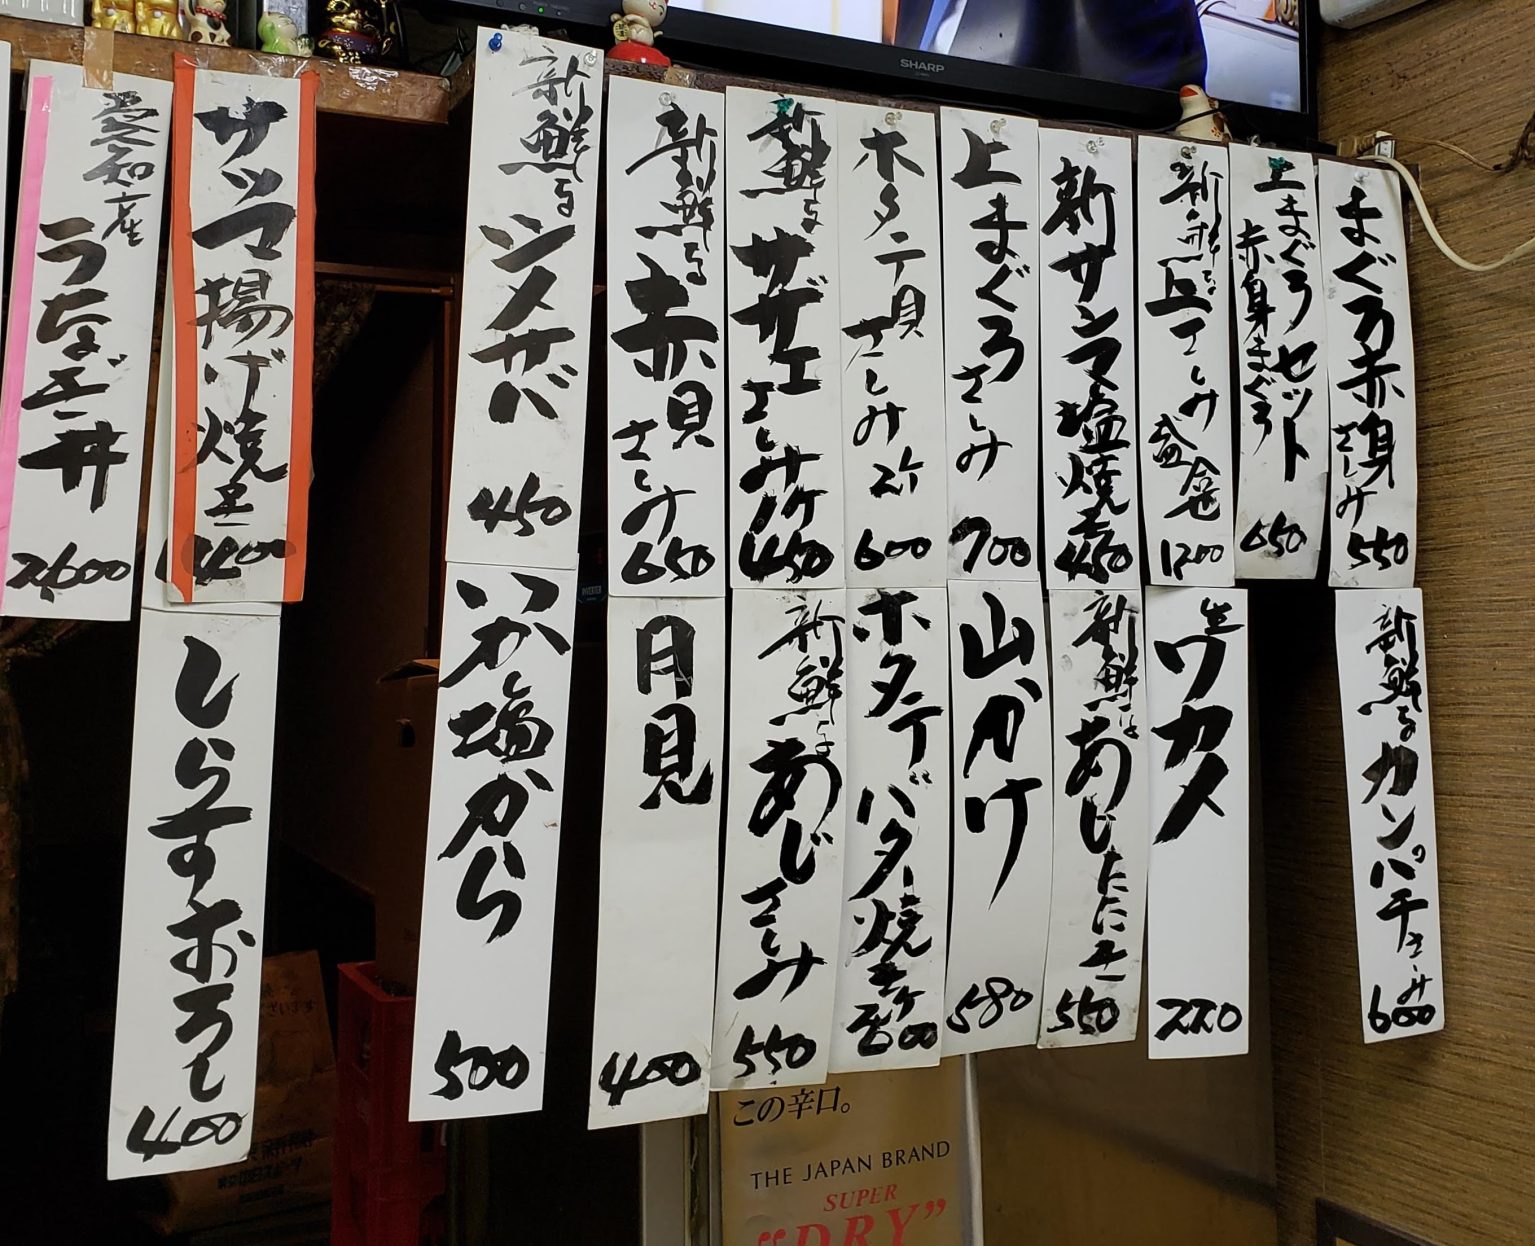 SHARP
まぐろ赤身
さしみ
550
上まぐろセット
赤身まぐろ
650
新鮮な
上さしみ
盛合せ
1200
新サンマ塩焼き
450
上まぐろ
さしみ
700
ホタテ貝
さしみ 2ケ
600
新鮮な
サザエ
さしみ 1ケ
450
新鮮な
赤貝
さしみ
650
新鮮な
シメサバ
450
サツマ揚げ焼き
400
愛知産
うなぎ丼
2,600
新鮮な
カンパチ
さしみ
600
生ワカメ
220
新鮮な
あじ
たたき
550
山かけ
580
ホタテバター焼き
2ケ
600
新鮮な
あじ
さしみ
550
月見
400
いか塩から
500
しらすおろし
400
この辛口。
THE JAPAN BRAND
SUPER
"DRY"